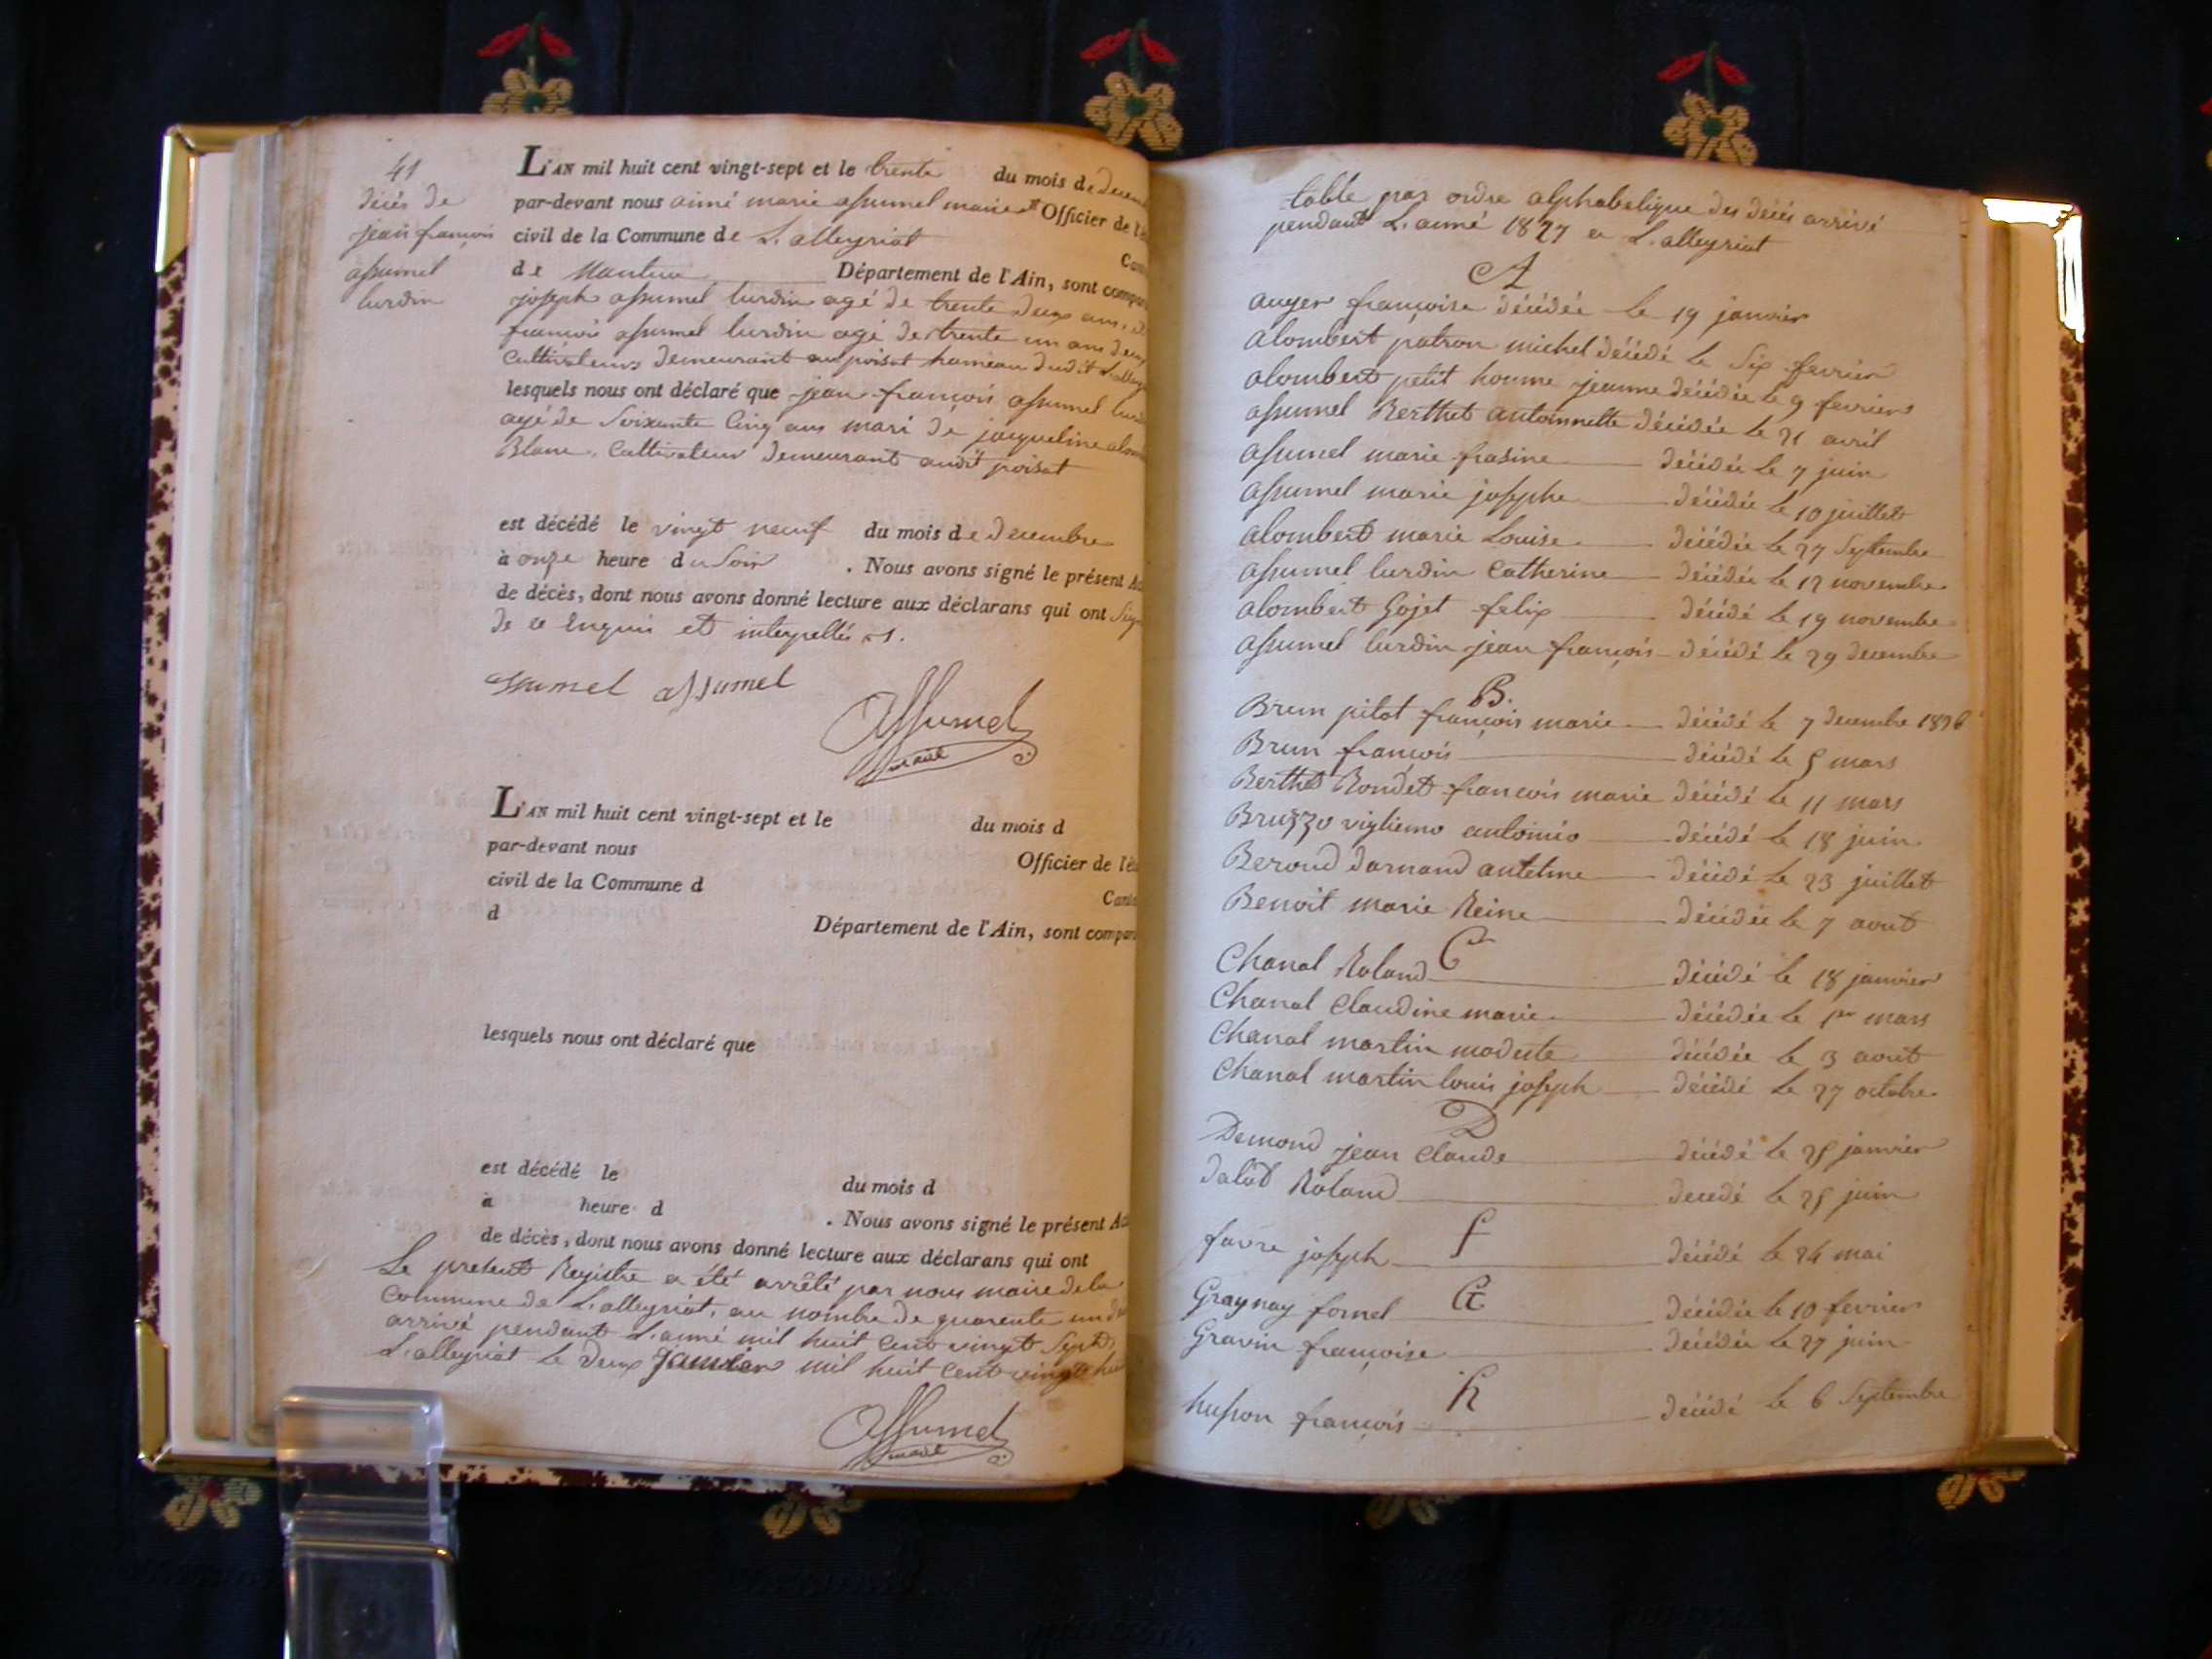 41
décés de
jean françois
assumel
lurdin
L'AN mil huit cent vingt-sept et le trente du mois de decem
par-devant nous aimé marie assumel maire Officier de l'é
civil de la Commune de L'alleyriat Can
de Nantua Département de l'Ain, sont compar
joseph assumel lurdin agé de trente deux ans, et
françois assumel lurdin agé de trente un ans deux
Cultivateurs demeurant au poisat hameau dudit L'alley
lesquels nous ont déclaré que jean françois assumel lur
agé de Soixante Cinq ans mari de jacqueline alom
Blanc, Cultivateur demeurant audit poisat
est décédé le vingt neuf du mois de decembre
à onze heure du Soir . Nous avons signé le présent Ac
de décès, dont nous avons donné lecture aux déclarans qui ont Sign
de ce Enquis et interpellés
assumel assumel
Assumel
maire
L'AN mil huit cent vingt-sept et le du mois d
par-devant nous Officier de l'ét
civil de la Commune d Canto
d Département de l'Ain, sont compar
lesquels nous ont déclaré que
est décédé le du mois d
à heure d . Nous avons signé le présent Ac
de décès, dont nous avons donné lecture aux déclarans qui ont
Le present Registre a été arrêté par nous maire de la
Commune de L'alleyriat, au nombre de quarente un
arrivé pendant L'anné mil huit Cent vingt Sept,
L'alleyriat le deux janvier mil huit Cent vingt hui
Assumel
maire
table par ordre alphabetique des décés arrivé
pendant L'anné 1827 a L'alleyriat
A
auger françoise décédée le 19 janvier
alombert patron michel décédé le Six fevrier
alombert petit homme jeanne décédée le 9 fevrier
assumel Berthet antoinnette décédée le 21 avril
assumel marie frasine décédée le 7 juin
assumel marie josephe décédée le 10 juillet
alombert marie Louise décédée le 27 Septembre
assumel lurdin Catherine décédée le 12 novembre
alombert Gojet felix décédé le 19 novembre
assumel lurdin jean françois décédé le 29 decembre
B.
Brun pilot françois marie décédé le 7 decembre 1826
Brun françois décédé le 5 mars
Berthet Rondet françois marie décédé le 11 mars
Bruzzo vigliemo antoinio décédé le 18 juin
Beroud darnand antelme décédé le 23 juillet
Benoit marie Reine décédée le 7 aout
C
Chanal Roland décédé le 18 janvier
Chanal Claudine marie décédée le 1er mars
Chanal martin modeste décédée le 3 aout
Chanal martin louis joseph décédé le 27 octobre
D
Demond jean Claude décédé le 25 janvier
dalod Roland decedé le 25 juin
f
favre joseph décédé le 24 mai
G
Graynay fornel décédée le 10 fevrier
Gravin françoise décédée le 27 juin
h
husson françois décédé le 6 Septembre